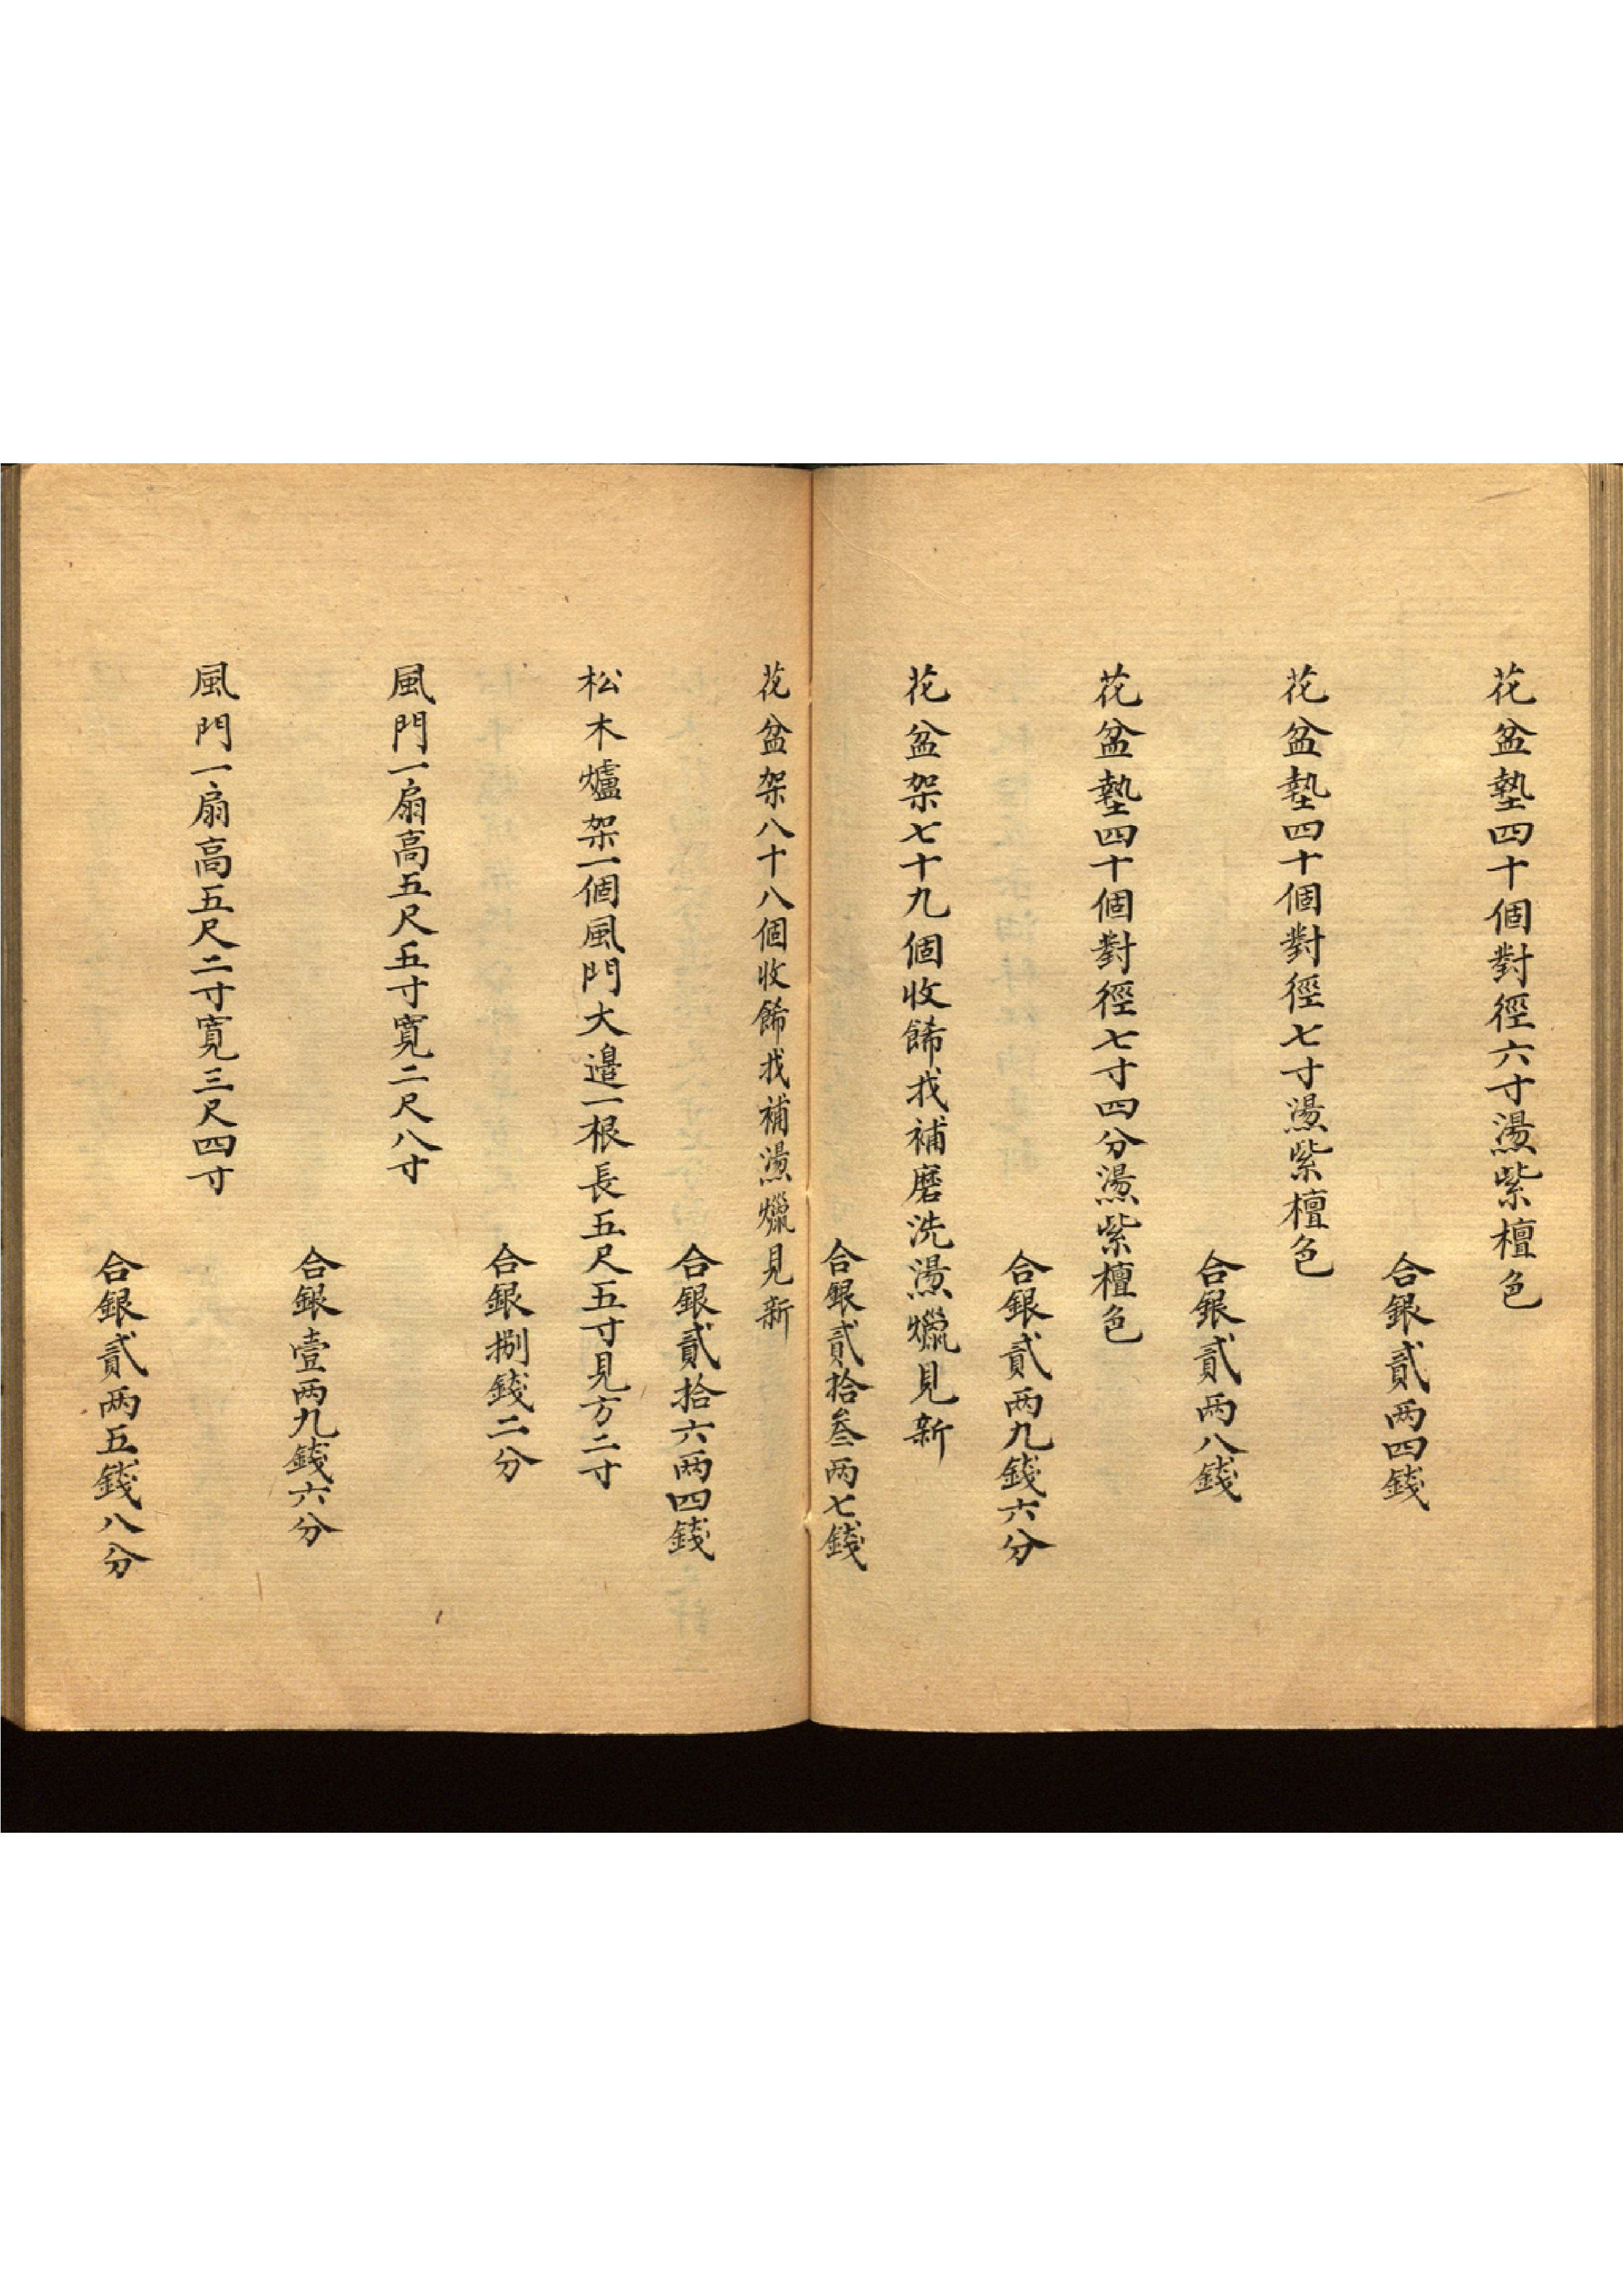 花盆墊四十個對徑六寸燙紫檀色
合銀貳两四錢
花盆墊四十個對徑七寸燙紫檀色
合銀貳两八錢
花盆墊四十個對徑七寸四分燙紫檀色
合銀貳两九錢六分
花盆架七十九個收餙找補磨洗燙蠟見新
合銀貳拾叁两七錢
花盆架八十八個收餙找補燙蠟見新
合銀貳拾六两四錢
松木爐架一個風門大邉一根長五尺五寸見方二寸
合銀捌錢二分
風門一扇高五尺五寸寬二尺八寸
合銀壹两九錢六分
風門一扇高五尺二寸寬三尺四寸
合銀貳两五錢八分